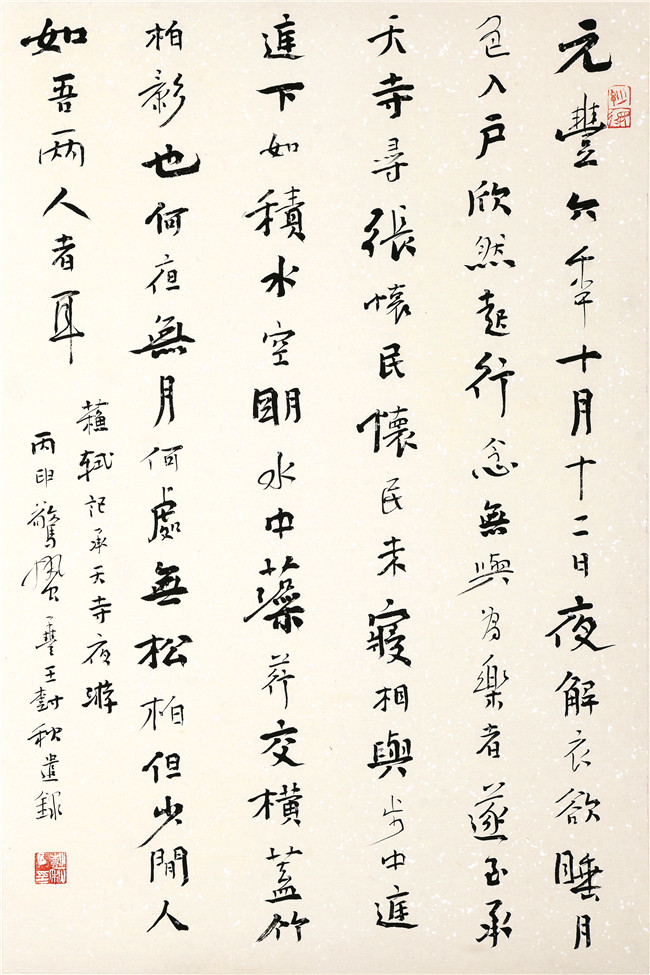 元豐六年十月十二日夜解衣欲睡月
色入戶欣然起行念無與為樂者遂至承
天寺尋張懷民懷民未寢相與步中庭
庭下如積水空明水中藻荇交橫蓋竹
柏影也何夜無月何處無松柏但少閒人
如吾兩人者耳
蘇軾記承天寺夜游
丙申驚蟄王秋錄